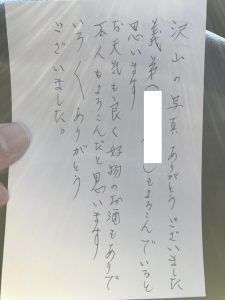 沢山の写真ありがとうございました
義弟もよろこんでいると
思います
お天気も良く好物のお酒もありで
本人もよろこんだと思います
いろ〱ありがとう
ございました。